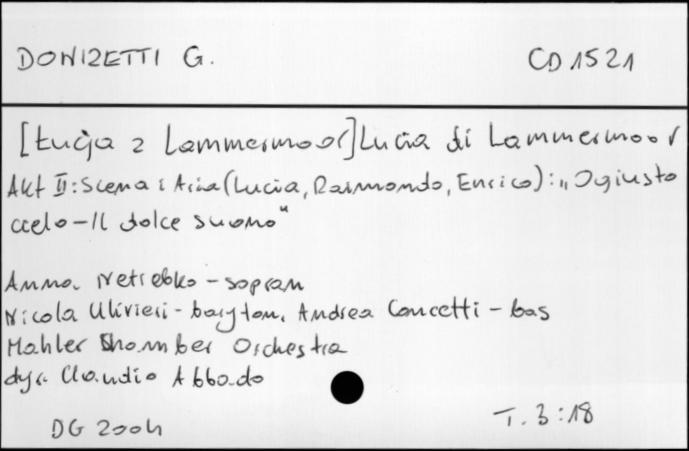 DONIZETTI G. CD 1521
[Łucja z Lammermoor] Lucia di Lammermoor
Akt II: Scena i Aria (Lucia, Raimondo, Enrico): „O giusto
cielo – Il dolce suono"
Anna Netrebko – sopran
Nicola Ulivieri – baryton, Andrea Concetti – bas
Mahler Chamber Orchestra
dyr. Claudio Abbado
DG 2004 T. 3:18